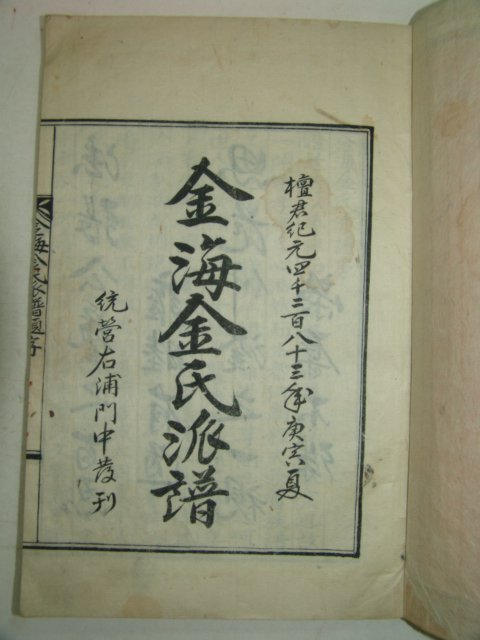 檀君紀元四千二百八十三年庚寅夏
金海金氏派譜
統營右浦門中發刊
金海金氏派譜題字